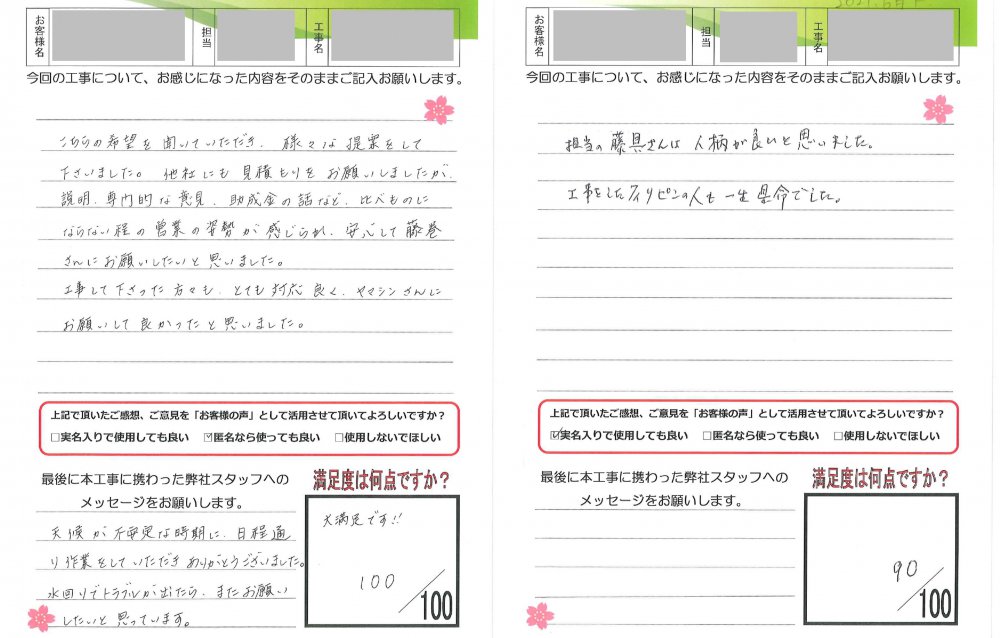 お客様名
担当
工事名
今回の工事について、お感じになった内容をそのままご記入お願いします。
こちらの希望を聞いていただき、様々な提案をして
下さいました。他社にも見積もりをお願いしましたが、
説明、専門的な意見、助成金の話など、比べものに
ならない程の営業の姿勢が感じられ、安心して藤巻
さんにお願いしたいと思いました。
工事して下さった方々も、とても対応良く、ヤマシンさんに
お願いして良かったと思いました。
上記で頂いたご感想、ご意見を「お客様の声」として活用させて頂いてよろしいですか?
□実名入りで使用しても良い ☑匿名なら使っても良い □使用しないでほしい
最後に本工事に携わった弊社スタッフへの
メッセージをお願いします。
天候が不安定な時期に、日程通
り作業をしていただきありがとうございました。
水回りでトラブルが出たら、またお願い
したいと思っています。
満足度は何点ですか?
大満足です!!
100/100
お客様名
担当
工事名
今回の工事について、お感じになった内容をそのままご記入お願いします。
担当の藤巻さんは人柄が良いと思いました。
工事をしたフィリピンの人も一生県命でした。
上記で頂いたご感想、ご意見を「お客様の声」として活用させて頂いてよろしいですか?
☑実名入りで使用しても良い □匿名なら使っても良い □使用しないでほしい
最後に本工事に携わった弊社スタッフへの
メッセージをお願いします。
満足度は何点ですか?
90/100